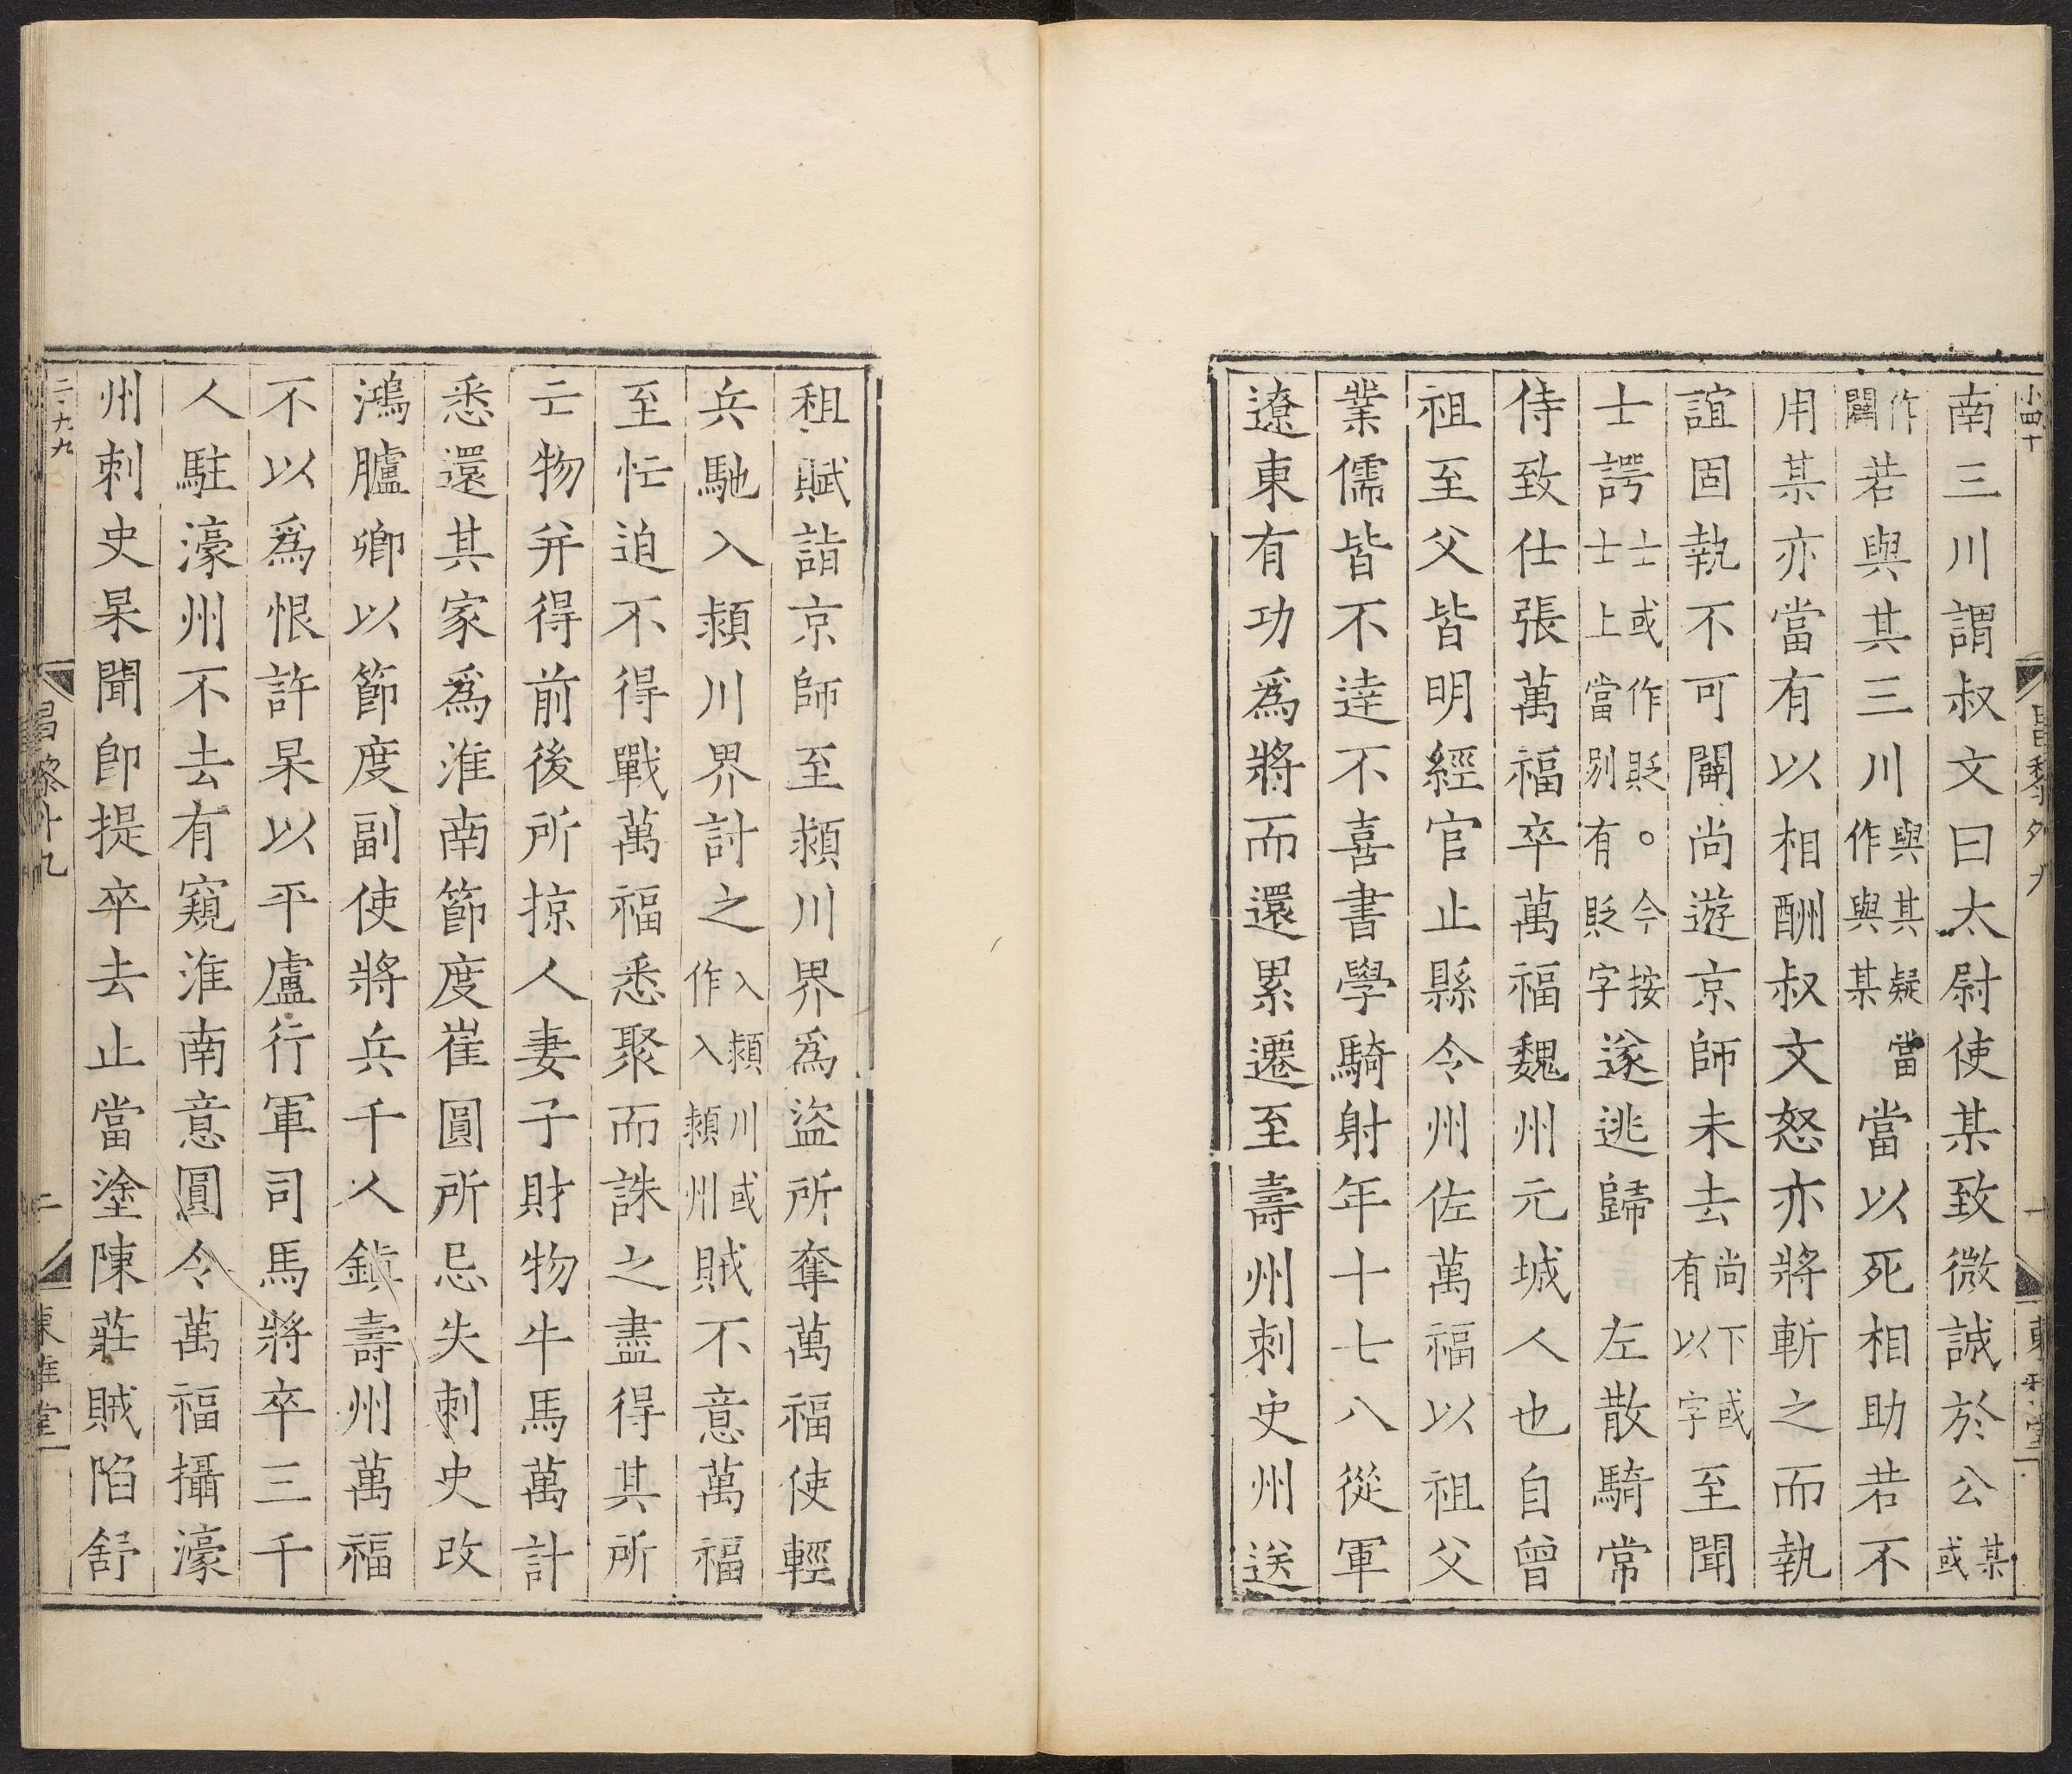 小四十
昌黎外九
一
東雅堂
南三川謂叔文曰太尉使某致微誠於公某或
作闢若與其三川與其疑當作與某當以死相助若不
用某亦當有以相酬叔文怒亦將斬之而執
誼固執不可闢尚遊京師未去尚下或有以字至聞
士諤士或作貶。今按士上當別有貶字遂逃歸　左散騎常
侍致仕張萬福卒萬福魏州元城人也自曾
祖至父皆明經官止縣令州佐萬福以祖父
業儒皆不達不喜書學騎射年十七八從軍
遼東有功爲將而還累遷至壽州刺史州送
租賦詣京師至潁川界爲盜所奪萬福使輕
兵馳入潁川界討之入潁川或作入潁州賊不意萬福
至忙迫不得戰萬福悉聚而誅之盡得其所
亡物并得前後所掠人妻子財物牛馬萬計
悉還其家爲淮南節度崔圓所忌失刺史改
鴻臚卿以節度副使將兵千人鎮壽州萬福
不以爲恨許杲以平盧行軍司馬將卒三千
人駐濠州不去有窺淮南意圓令萬福攝濠
州刺史杲聞即提卒去止當塗陳莊賊陷舒
二九九
昌黎外九
二
東雅堂